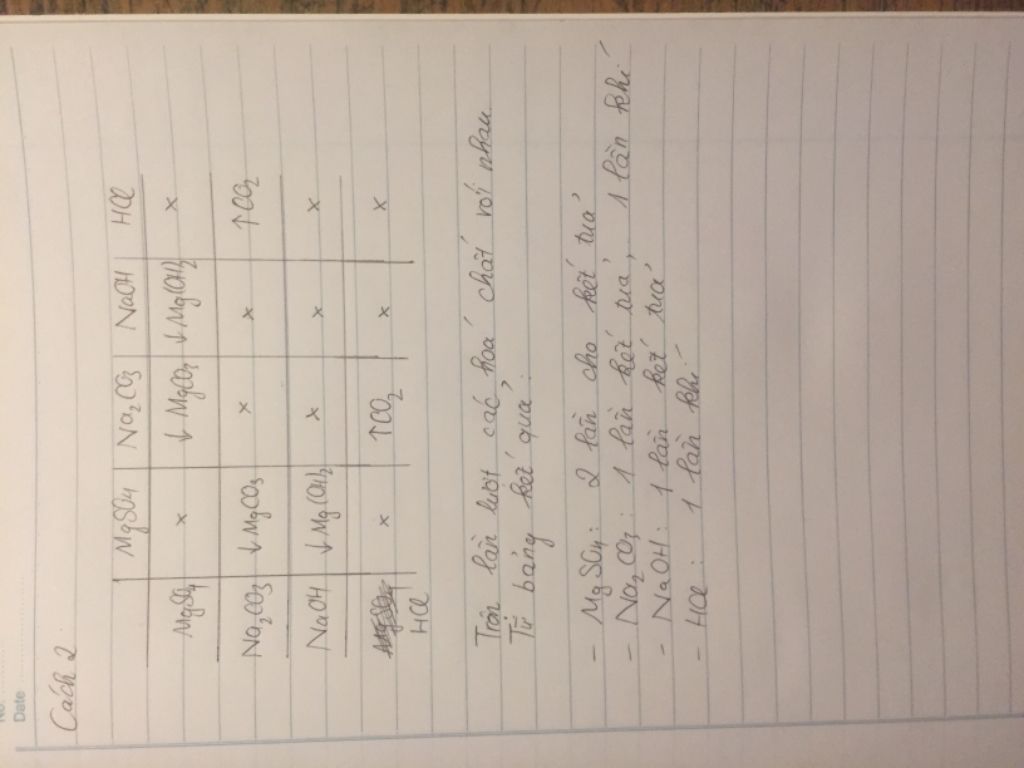 No:
Date
Cách 2
MgSO4 Na2CO3 NaOH HCl
MgSO4 x ↓MgCO3 ↓Mg(OH)2 x
Na2CO3 ↓MgCO3 x x ↑CO2
NaOH ↓Mg(OH)2 x x x
HCl x ↑CO2 x x
Trộn lần lượt các hoá chất với nhau.
Từ bảng kết quả:
- MgSO4: 2 lần cho kết tủa
- Na2CO3: 1 lần kết tủa, 1 lần khí
- NaOH: 1 lần kết tủa
- HCl: 1 lần khí